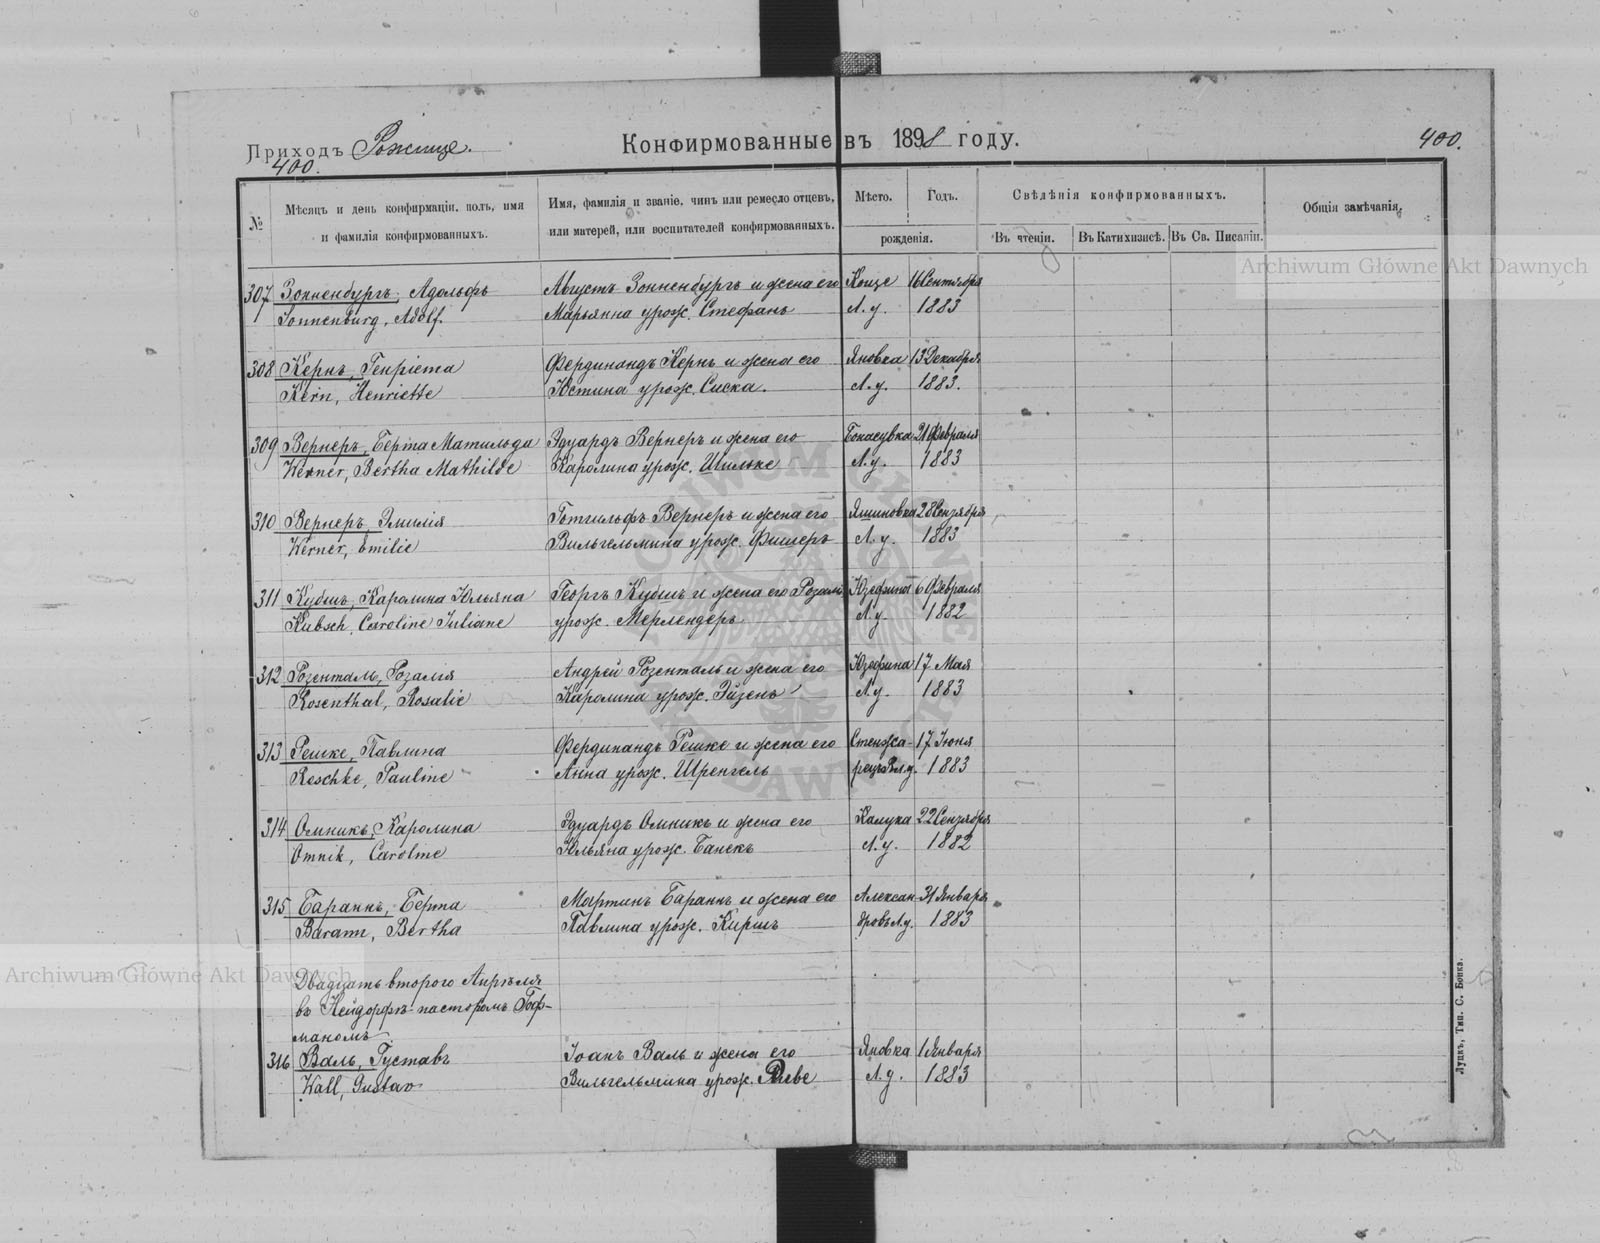 Приходъ Рожище.
Конфирмованные въ 1898 году.
400.
400.
№
Мѣсяцъ и день конфирмаціи, полъ, имя
и фамилія конфирмованныхъ.
Имя, фамилія и званіе, чинъ или ремесло отцевъ,
или матерей, или воспитателей конфирмованныхъ.
Мѣсто.
Годъ.
рожденія.
Свѣдѣнія конфирмованныхъ.
Въ чтеніи.
Въ Катихизисѣ.
Въ Св. Писаніи.
Общія замѣчанія.
307 Зонненбургъ, Адольфъ Августъ Зонненбургъ и жена его 16 Сентября
Sonnenburg, Adolf. Марьянна урож. Стефанъ Л. у. 1883
308 Кернъ, Генріета Фердинандъ Кернъ и жена его Яновка 13 Декабря
Kern, Henriette Юстина урож. Сиска. Л. у. 1883.
309 Вернеръ, Берта Матильда Эдуардъ Вернеръ и жена его 21 Февраля
Werner, Bertha Mathilde Каролина урож. Шильке Л. у. 1883
310 Вернеръ, Эмилія Готгильфъ Вернеръ и жена его Яшиновка 28 Сентября
Werner, Emilie Вильгельмина урож. Фишеръ Л. у. 1883
311 Кубшъ, Каролина Юльяна Георгъ Кубшъ и жена его Юзефина 6 Февраля
Kubsch, Caroline Juliane урож. Мерлендеръ Л. у. 1882
312 Розенталь, Розалія Андрей Розенталь и жена его Юзефина 17 Мая
Rosenthal, Rosalie Каролина урож. Эйзенъ Л. у. 1883
313 Решке, Павлина Фердинандъ Решке и жена его Стенжа- 17 Іюня
Reschke, Pauline Анна урож. Шренгель Л. у. 1883
314 Омникъ, Каролина Эдуардъ Омникъ и жена его 22 Сентября
Omnik, Caroline Юльяна урож. Банекъ Л. у. 1882
315 Бараннъ, Берта Мартинъ Бараннъ и жена его Алексан- 31 Января
Barann, Bertha Павлина урож. Киршъ дровъ Л. у. 1883
Двадцать второго Апрѣля
въ Нейдорфѣ пасторомъ Гоф-
маномъ
316 Валь, Густавъ Іоанъ Валь и жена его Яновка 1 Января
Wall, Gustav Вильгельмина урож. Л. у. 1883
Луцкъ, Тип. С. Бонка.
Archiwum Główne Akt Dawnych
Archiwum Główne Akt Dawnych
ARCHIWUM GŁÓWNE AKT DAWNYCH